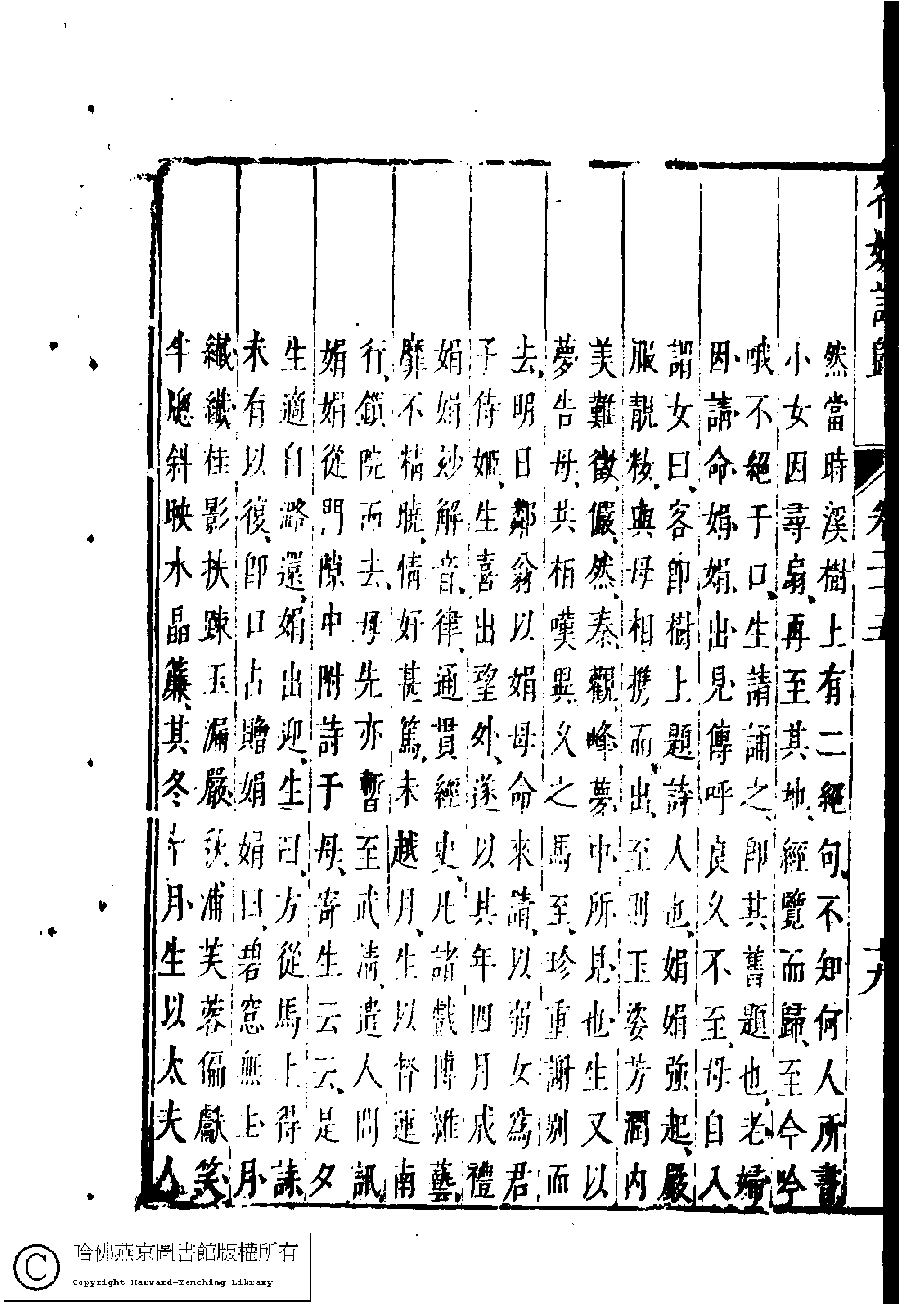 名媛詩歸
卷二十五
十九
然當時溪樹上有二絕句不知何人所書
小女因尋扇再至其地經覽而歸至今吟
哦不絕于口生請誦之即其舊題也老婦
因請命娟娟出見傳呼良久不至母自入
謂女曰客即樹上題詩人也娟娟強起嚴
服靚粧與母相携而出至則玉姿芳潤内
美難徵儼然秦觀峰夢中所見也生又以
夢告母共相嘆異久之馬至珍重謝別而
去明日鄰翁以娟母命來請以弱女為君
子侍姬生喜出望外遂以其年四月成禮
娟娟玅解音律通貫經史凡諸戲博雜藝
靡不精曉情好甚篤未越月生以督運南
行鎖院而去母先亦暫至武清遣人問訊
娟娟從門隙中附詩于母寄生云云是夕
生適自潞還娟出迎生曰方從馬上得詠
未有以復即口占贈娟娟曰碧窓無上月
纖纖桂影扶疎玉漏嚴秋浦芙蓉偏獻笑
半牕斜映水晶簾其冬十月生以太夫人
哈佛燕京圖書館版權所有
Copyright Harvard-Yenching Library